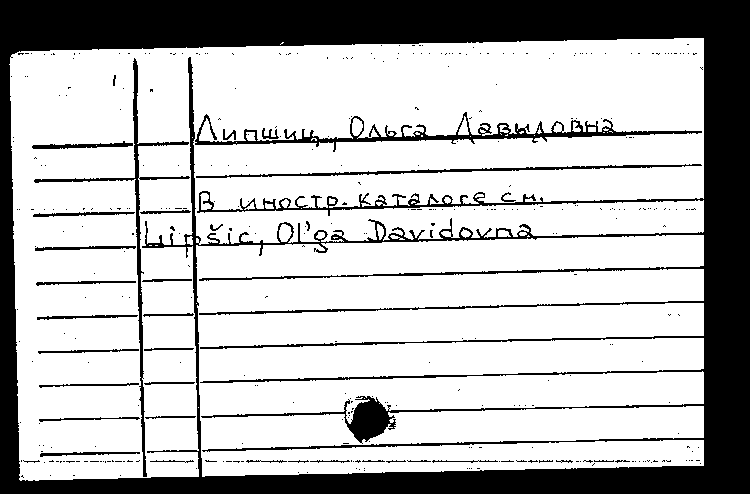 Липшиц, Ольга Давыдовна
В иностр. каталоге см.
Lipšic, Ol'ga Davidovna